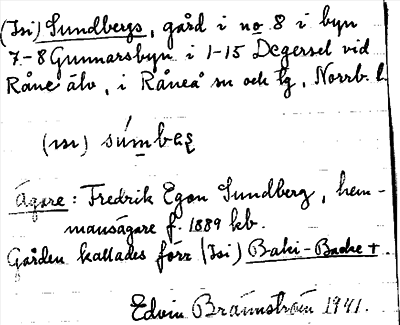 (Isi) Sundbergs, gård i no 8 i byn
7-8 Gunnarsbyn i 1-15 Degersel vid
Råne älv, i Råneå sn och tg, Norrb. l.
(ısı) súmbæʂ
Ägare: Fredrik Egon Sundberg, hem-
mansägare f. 1889 kb.
Gården kallades förr (Isi) Baki-Backe +.
Edvin Brännström 1941.